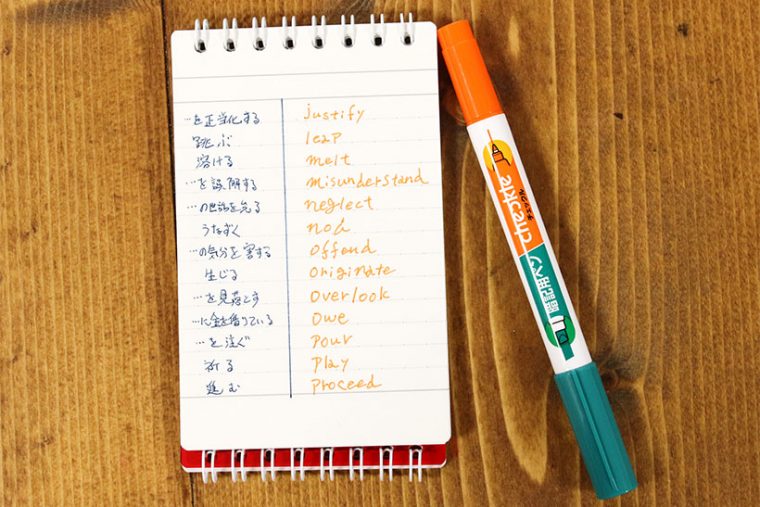 …を正当化する justify
跳ぶ leap
溶ける melt
…を誤解する misunderstand
…の世話を怠る neglect
うなずく nod
…の気分を害する offend
生じる originate
…を見落とす overlook
…に金を借りている owe
…を注ぐ pour
祈る play
進む proceed
checkle
チェックル
暗記用ペン